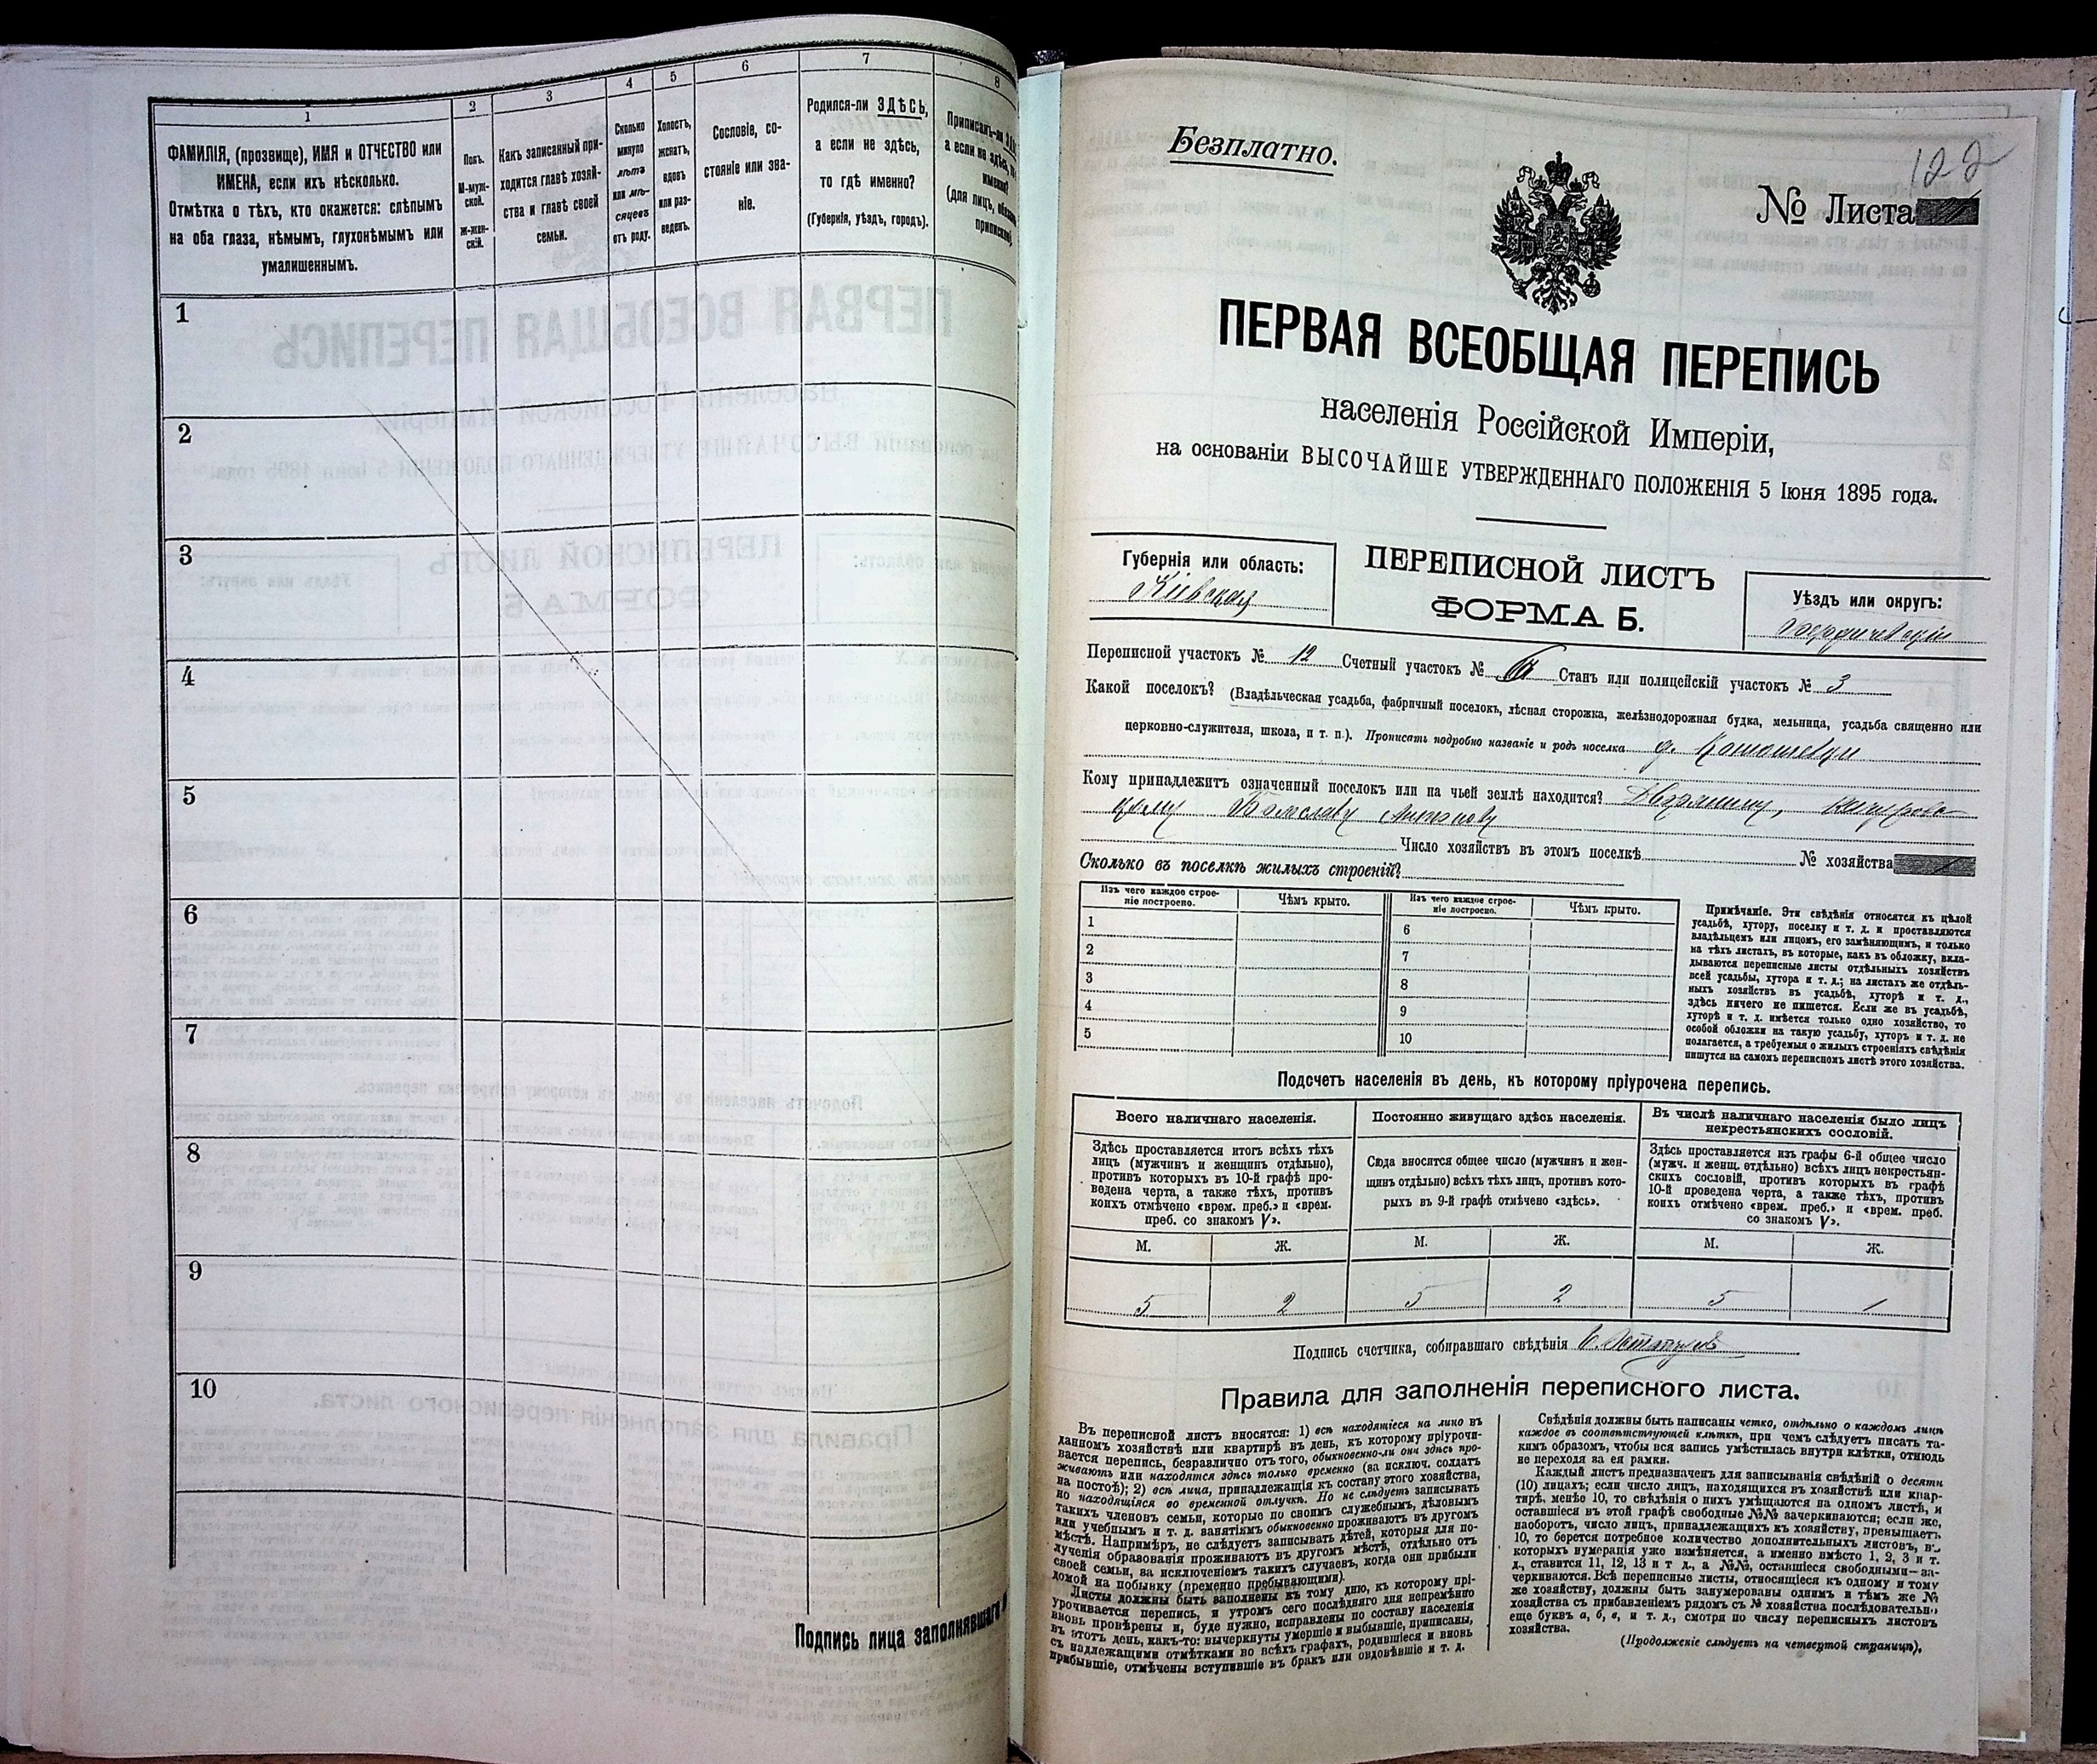 1
2
3
4
5
6
7
8
ФАМИЛІЯ, (прозвище), ИМЯ и ОТЧЕСТВО или
ИМЕНА, если ихъ нѣсколько.
Отмѣтка о тѣхъ, кто окажется: слѣпымъ
на оба глаза, нѣмымъ, глухонѣмымъ или
умалишеннымъ.
Полъ.
М-муж-
ской.
ж-жен-
скій.
Какъ записанный при-
ходится главѣ хозяй-
ства и главѣ своей
семьи.
Сколько
минуло
лѣтъ
или мѣ-
сяцевъ
отъ роду.
Холостъ,
женатъ,
вдовъ
или раз-
веденъ.
Сословіе, со-
стояніе или зва-
ніе.
Родился-ли ЗДѢСЬ,
а если не здѣсь,
то гдѣ именно?
(Губернія, уѣздъ, городъ).
Приписанъ-ли
а если не здѣсь,
(для лицъ,
1
2
3
4
5
6
7
8
9
10
Подпись лица заполнявшаго
Безплатно.
122
№ Листа
ПЕРВАЯ ВСЕОБЩАЯ ПЕРЕПИСЬ
населенія Россійской Имперіи,
на основаніи ВЫСОЧАЙШЕ УТВЕРЖДЕННАГО ПОЛОЖЕНІЯ 5 Іюня 1895 года.
Губернія или область:
Кіевская
ПЕРЕПИСНОЙ ЛИСТЪ
ФОРМА Б.
Уѣздъ или округъ:
Бердичевскій
Переписной участокъ № 12 Счетный участокъ № Станъ или полицейскій участокъ № 3
Какой поселокъ? (Владѣльческая усадьба, фабричный поселокъ, лѣсная сторожка, желѣзнодорожная будка, мельница, усадьба священно или
церковно-служителя, школа, и т. п.). Прописать подробно названіе и родъ поселка д.
Кому принадлежитъ означенный поселокъ или на чьей землѣ находится? Дворянину,
Число хозяйствъ въ этомъ поселкѣ № хозяйства
Сколько въ поселкѣ жилыхъ строеній?
Изъ чего каждое строе-
ніе построено.
Чѣмъ крыто.
Изъ чего каждое строе-
ніе построено.
Чѣмъ крыто.
1
2
3
4
5
6
7
8
9
10
Примѣчаніе. Эти свѣдѣнія относятся къ цѣлой
усадьбѣ, хутору, поселку и т. д. и проставляются
владѣльцемъ или лицомъ, его замѣняющимъ, и только
на тѣхъ листахъ, въ которые, какъ въ обложку, вкла-
дываются переписные листы отдѣльныхъ хозяйствъ
всей усадьбы, хутора и т. д.; на листахъ же отдѣль-
ныхъ хозяйствъ въ усадьбѣ, хуторѣ и т. д.,
здѣсь ничего не пишется. Если же въ усадьбѣ,
хуторѣ и т. д. имѣется только одно хозяйство, то
особой обложки на такую усадьбу, хуторъ и т. д. не
полагается, а требуемыя о жилыхъ строеніяхъ свѣдѣнія
пишутся на самомъ переписномъ листѣ этого хозяйства.
Подсчетъ населенія въ день, къ которому пріурочена перепись.
Всего наличнаго населенія.
Постоянно живущаго здѣсь населенія.
Въ числѣ наличнаго населенія было лицъ
некрестьянскихъ сословій.
Здѣсь проставляется итогъ всѣхъ тѣхъ
лицъ (мужчинъ и женщинъ отдѣльно),
противъ которыхъ въ 10-й графѣ про-
ведена черта, а также тѣхъ, противъ
коихъ отмѣчено «врем. преб.» и «врем.
преб. со знакомъ V».
Сюда вносятся общее число (мужчинъ и жен-
щинъ отдѣльно) всѣхъ тѣхъ лицъ, противъ кото-
рыхъ въ 9-й графѣ отмѣчено «здѣсь».
Здѣсь проставляется изъ графы 6-й общее число
(мужч. и женщ. отдѣльно) всѣхъ лицъ некрестьян-
скихъ сословій, противъ которыхъ въ графѣ
10-й проведена черта, а также тѣхъ, противъ
коихъ отмѣчено «врем. преб.» и «врем. преб.
со знакомъ V».
М. Ж. М. Ж. М. Ж.
5 2 5 2 5 1
Подпись счетчика, собиравшаго свѣдѣнія
Правила для заполненія переписного листа.
Въ переписной листъ вносятся: 1) всѣ находящіеся на лицо въ
данномъ хозяйствѣ или квартирѣ въ день, къ которому пріурочи-
вается перепись, безразлично отъ того, обыкновенно-ли они здѣсь про-
живаютъ или находятся здѣсь только временно (за исключ. солдатъ
на постоѣ); 2) всѣ лица, принадлежащія къ составу этого хозяйства,
но находящіяся во временной отлучкѣ. Но не слѣдуетъ записывать
такихъ членовъ семьи, которые по своимъ служебнымъ, дѣловымъ
или учебнымъ и т. д. занятіямъ обыкновенно проживаютъ въ другомъ
мѣстѣ. Напримѣръ, не слѣдуетъ записывать дѣтей, которыя для по-
лученія образованія проживаютъ въ другомъ мѣстѣ, отдѣльно отъ
своей семьи, за исключеніемъ такихъ случаевъ, когда они прибыли
домой на побывку (временно пребывающими).
Листы должны быть заполнены къ тому дню, къ которому прі-
урочивается перепись, и утромъ сего послѣдняго дня непремѣнно
вновь провѣрены и, буде нужно, исправлены по составу населенія
въ этотъ день, какъ-то: вычеркнуты умершіе и выбывшіе, приписаны,
съ надлежащими отмѣтками во всѣхъ графахъ, родившіеся и вновь
прибывшіе, отмѣчены вступившіе въ бракъ или овдовѣвшіе и т. д.
Свѣдѣнія должны быть написаны четко, отдѣльно о каждомъ лицѣ
каждое въ соотвѣтствующей клѣткѣ, при чемъ слѣдуетъ писать та-
кимъ образомъ, чтобы вся запись умѣстилась внутри клѣтки, отнюдь
не переходя за ея рамки.
Каждый листъ предназначенъ для записыванія свѣдѣній о десяти
(10) лицахъ; если число лицъ, находящихся въ хозяйствѣ или квар-
тирѣ, менѣе 10, то свѣдѣнія о нихъ умѣщаются на одномъ листѣ, и
оставшіеся въ этой графѣ свободные №№ зачеркиваются; если же,
наоборотъ, число лицъ, принадлежащихъ къ хозяйству, превышаетъ
10, то берется потребное количество дополнительныхъ листовъ, въ
которыхъ нумерація уже измѣняется, а именно вмѣсто 1, 2, 3 и т.
д., ставится 11, 12, 13 и т д., а №№, оставшіеся свободными—за-
черкиваются. Всѣ переписные листы, относящіеся къ одному и тому
же хозяйству, должны быть занумерованы однимъ и тѣмъ же №
хозяйства съ прибавленіемъ рядомъ съ № хозяйства послѣдовательно
еще буквъ а, б, в, и т. д., смотря по числу переписныхъ листовъ
хозяйства.
(Продолженіе слѣдуетъ на четвертой страницѣ).